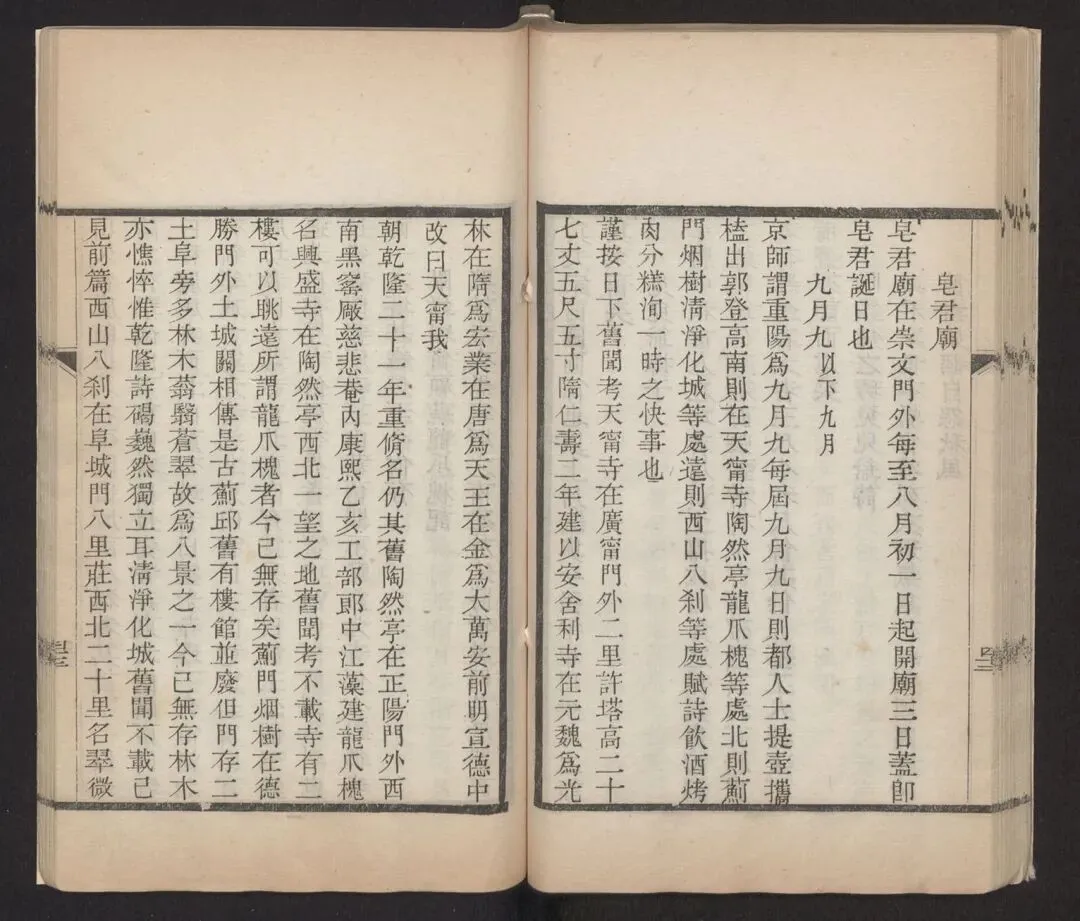 皂君廟
皂君廟在崇文門外每至八月初一日起開廟三日蓋卽
皂君誕日也
九月九以下九月
京師謂重陽爲九月九每屆九月九日則都人士提壺攜
榼出郭登高南則在天甯寺陶然亭龍爪槐等處北則薊
門烟樹淸淨化城等處遠則西山八刹等處賦詩飮酒烤
肉分糕洵一時之快事也
謹按日下舊聞考天甯寺在廣甯門外二里許塔高二十
七丈五尺五寸隋仁壽二年建以安舍利寺在元魏爲光
四二
林在隋爲宏業在唐爲天王在金爲大萬安前明宣德中
改曰天甯我
朝乾隆二十一年重脩名仍其舊陶然亭在正陽門外西
南黑窰厰慈悲菴內康熙乙亥工部郎中江藻建龍爪槐
名興盛寺在陶然亭西北一望之地舊聞考不載寺有二
樓可以眺遠所謂龍爪槐者今已無存矣薊門烟樹在德
勝門外土城關相傳是古薊邱舊有樓館並廢但門存二
土阜旁多林木蓊翳蒼翠故爲八景之一今已無存林木
亦憔悴惟乾隆詩碣巍然獨立耳淸淨化城舊聞不載已
見前篇西山八刹在阜城門八里莊西北二十里名翠微